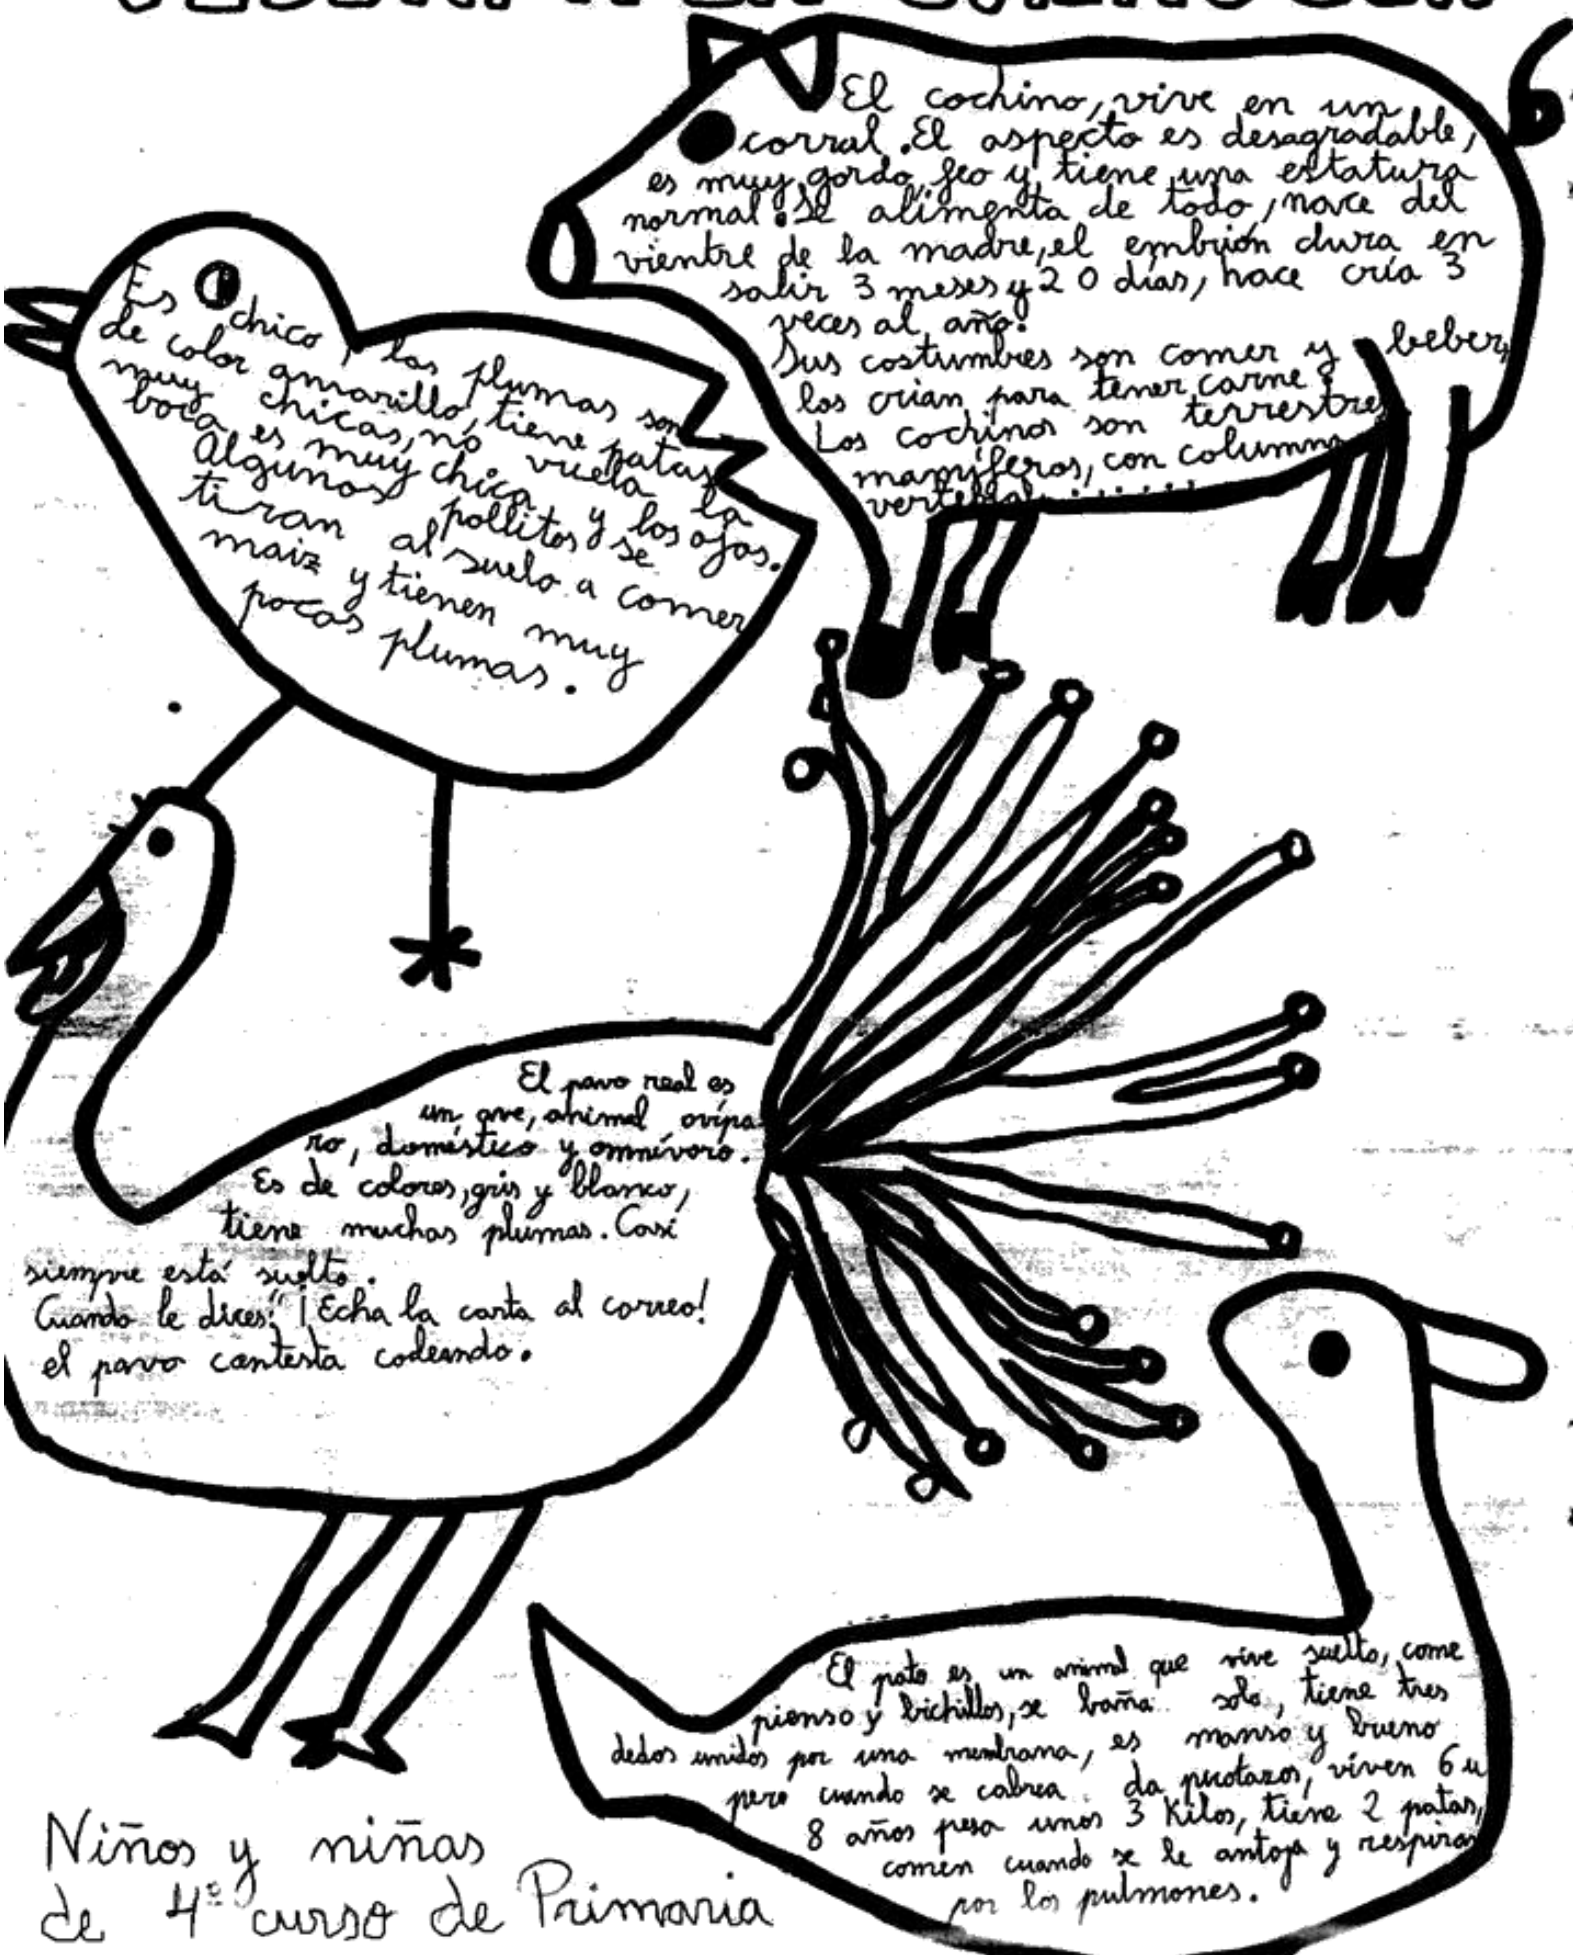 El cochino, vive en un
corral. El aspecto es desagradable,
es muy gordo, feo y tiene una estatura
normal. Se alimenta de todo, nace del
vientre de la madre, el embrión dura en
salir 3 meses y 20 días, hace cría 3
veces al año.
Sus costumbres son comer y beber,
los crian para tener carne.
Los cochinos son terrestres
mamíferos, con columna
Es chico, las plumas son
de color amarillo, tiene patas
muy chicas, no vuela la
boca es muy chica y los ojos.
Algunos pollitos se
tiran al suelo a comer
maiz y tienen muy
pocas plumas.
El pavo real es
un ave, animal ovípa
ro, doméstico y omnívoro.
Es de colores, gris y blanco,
tiene muchas plumas. Casi
siempre está suelto.
Cuando le dices:" ¡Echa la carta al correo!
el pavo contesta codeando.
El pato es un animal que vive suelto, come
pienso y bichillos, se baña solo, tiene tres
dedos unidos por una membrana, es manso y bueno
pero cuando se cabrea da picotazos, viven 6 u
8 años pesa unos 3 Kilos, tiene 2 patas,
comen cuando se le antoja y respiran
por los pulmones.
Niños y niñas
de 4º curso de Primaria